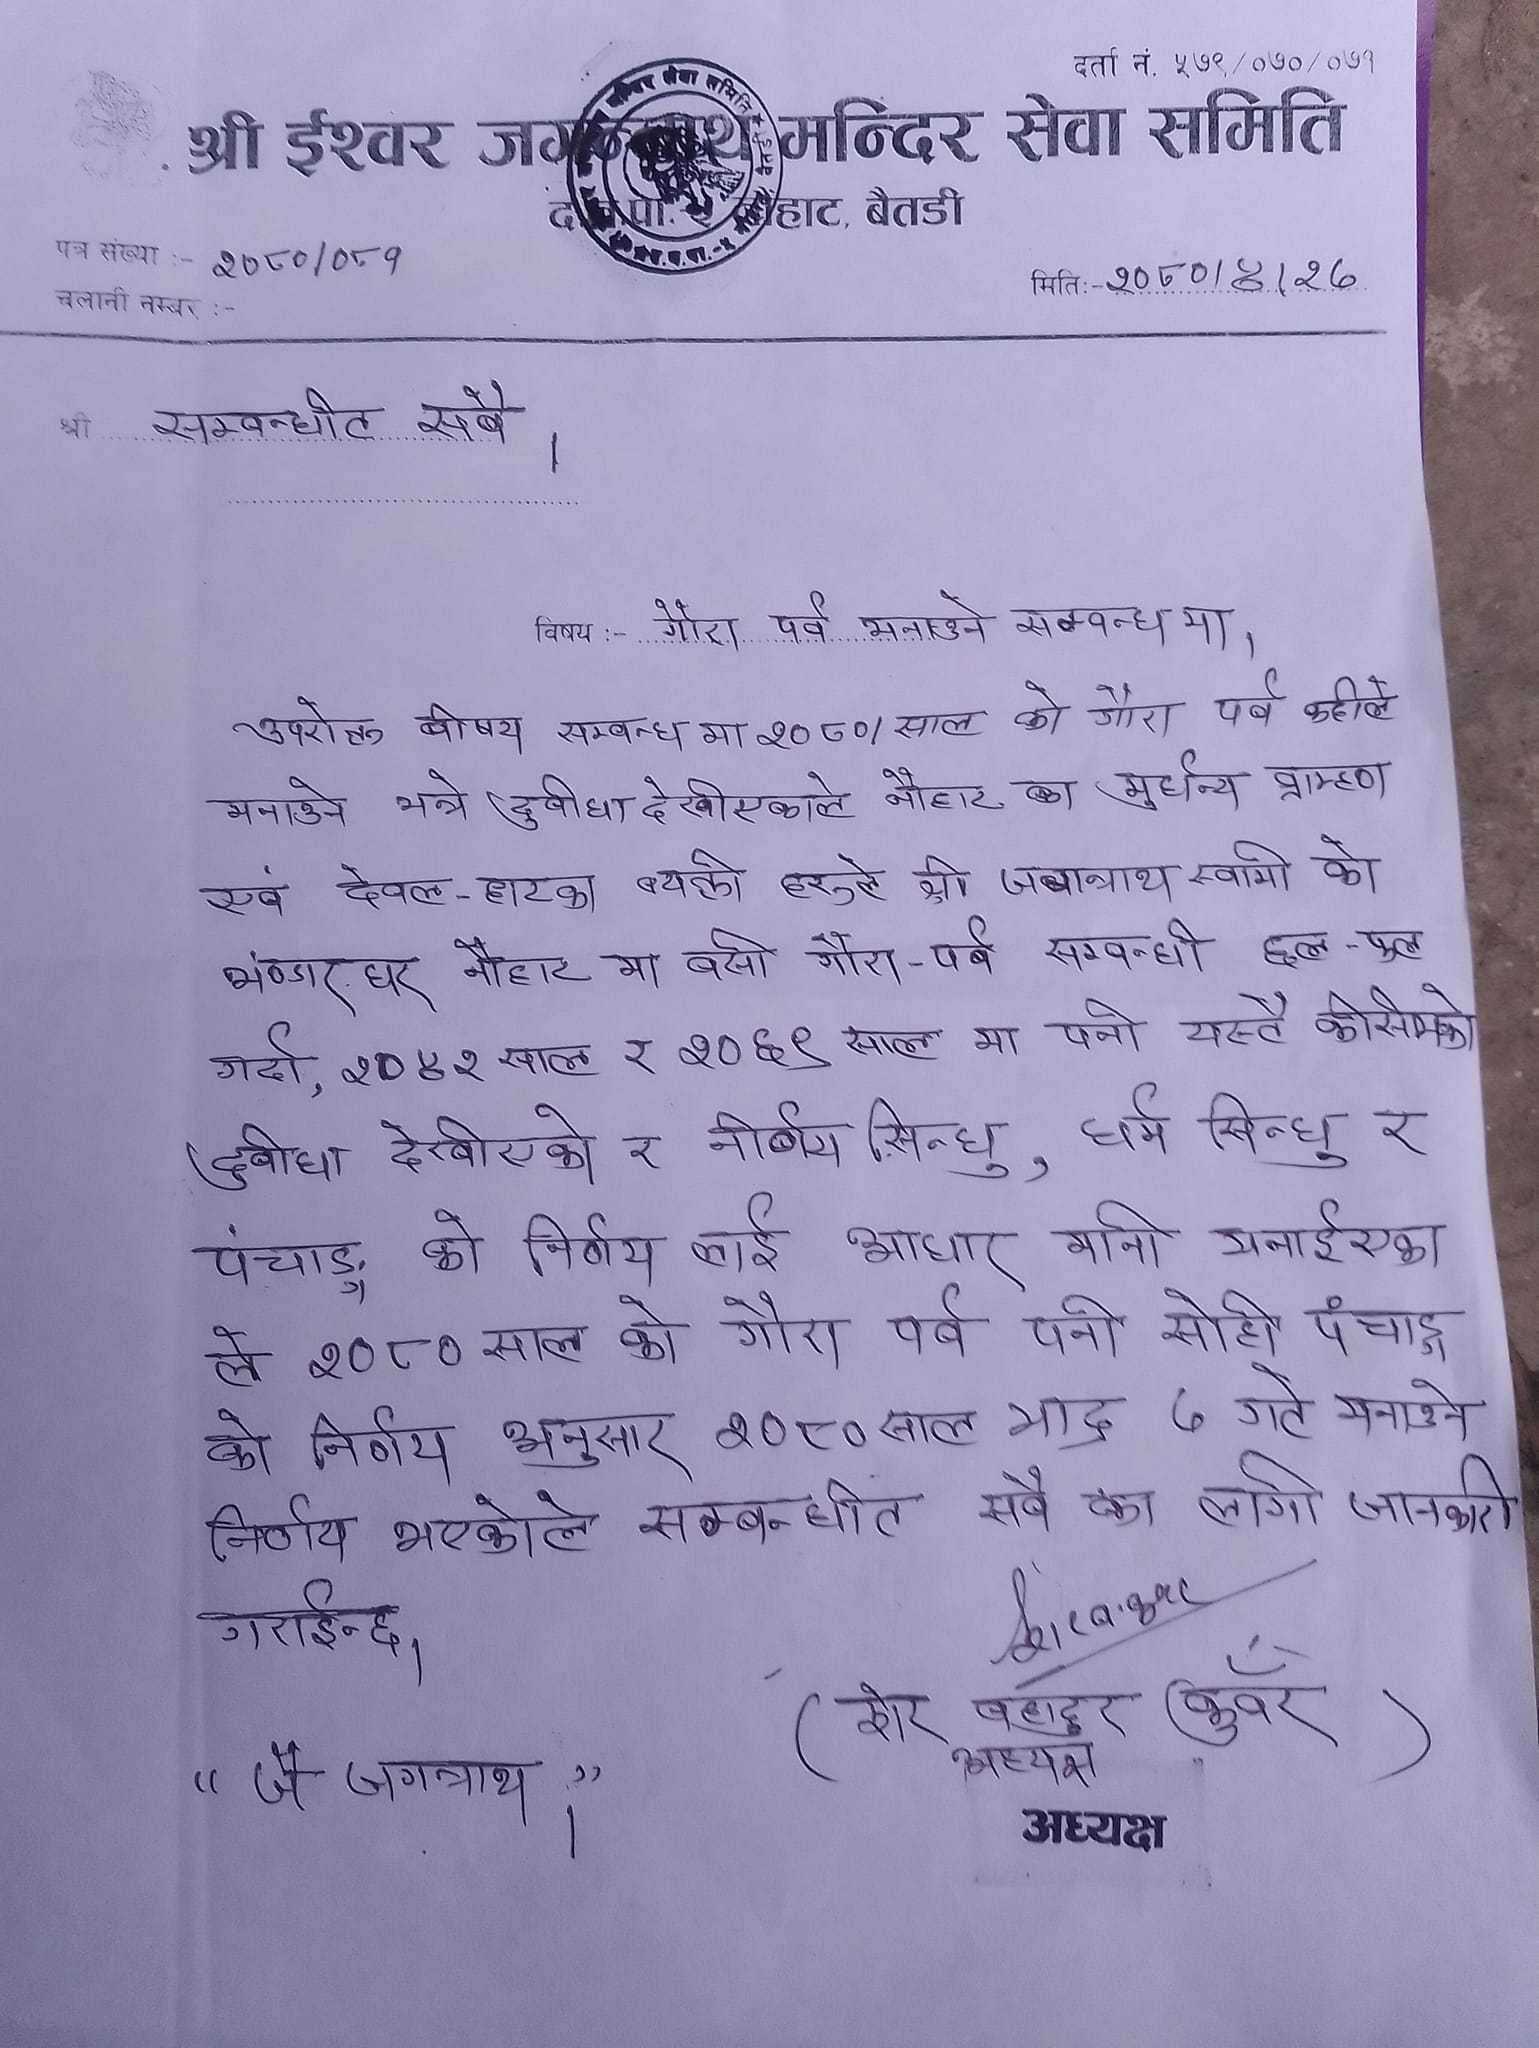 दर्ता नं. ५७९/०७०/०७१
श्री ईश्वर जगन्नाथ मन्दिर सेवा समिति
हाट, बैतडी
पत्र संख्या :- २०८०/०८१
मिति:- २०८०/४/२८
चलानी नम्बर :-
श्री सम्बन्धीत सबै ।
विषय :- गौरा पर्व मनाउने सम्बन्ध मा,
उपरोक्त बीषय सम्बन्ध मा २०८०/साल को गौरा पर्व कहीले
मनाउने भन्ने दुबीधा देखीएकाले नौहाट का मुर्धन्य ब्राम्हण
एवं देवल-हाटका ब्यक्ती हरुले श्री जगन्नाथ स्वामी को
भण्डार घर नौहाट मा बसी गौरा-पर्व सम्बन्धी छल-फल
गर्दा, २०४२ साल र २०६९ साल मा पनी यस्तै कीसीमको
दुबीधा देखीएको र नीर्णय सिन्धु, धर्म सिन्धु र
पंचाङ्ग को निर्णय लाई आधार मानी मनाईएका
ले २०८० साल को गौरा पर्व पनी सोही पंचाङ्ग
को निर्णय अनुसार २०८० साल भाद्र ८ गते मनाउने
निर्णय भएकोले सम्बन्धीत सबै का लागी जानकारी
गराईन्छ,
(शेर बहादुर कुवँर)
अध्यक्ष
“ जै जगन्नाथ ।”
अध्यक्ष